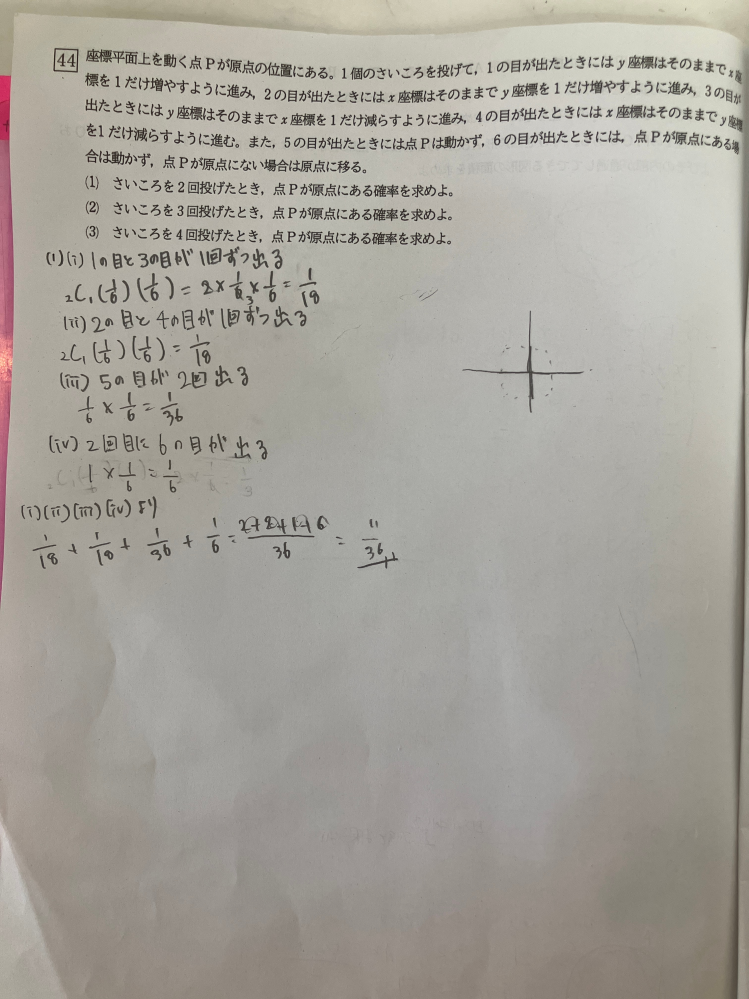 44 座標平面上を動く点Pが原点の位置にある。1個のさいころを投げて,1の目が出たときにはy座標はそのままでx座
標を1だけ増やすように進み,2の目が出たときにはx座標はそのままでy座標を1だけ増やすように進み,3の目が
出たときにはy座標はそのままでx座標を1だけ減らすように進み,4の目が出たときにはx座標はそのままでy座標
を1だけ減らすように進む。また,5の目が出たときには点Pは動かず,6の目が出たときには,点Pが原点にある場
合は動かず,点Pが原点にない場合は原点に移る。
(1) さいころを2回投げたとき,点Pが原点にある確率を求めよ。
(2) さいころを3回投げたとき,点Pが原点にある確率を求めよ。
(3) さいころを4回投げたとき,点Pが原点にある確率を求めよ。
(1)(i) 1の目と3の目が1回ずつ出る
₂C₁(1/6)(1/6) = 2 × 1/6 × 1/6 = 1/18
(ii) 2の目と4の目が1回ずつ出る
₂C₁(1/6)(1/6) = 1/18
(iii) 5の目が2回出る
1/6 × 1/6 = 1/36
(iv) 2回目に6の目が出る
1 × 1/6 = 1/6
(i)(ii)(iii)(iv)より
1/18 + 1/18 + 1/36 + 1/6 = 2+2+1+6/36 = 11/36